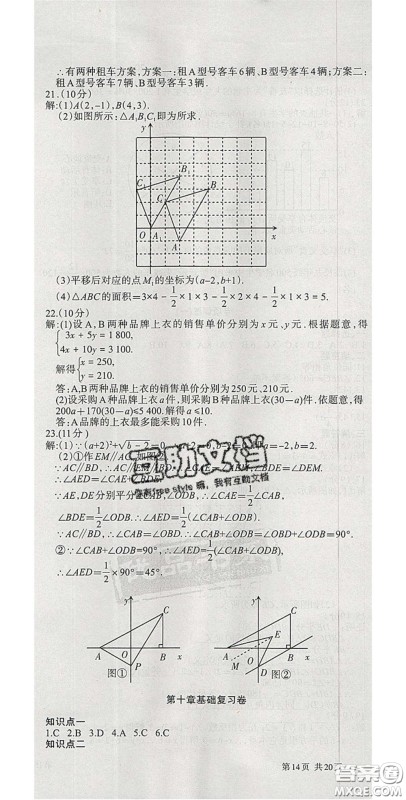 ∴有两种租车方案,方案一:租A型号客车6辆、B型号客车4辆;方案二:
租A型号客车7辆、B型号客车3辆.
21.(10分)
解:(1)A(2,-1),B(4,3).
(2)如图所示:△A₁B₁C₁即为所求.
y
C₁ B₁ C B
O A₁ A x
(3)平移后对应的点M₁的坐标为(a-2,b+1).
(4)△ABC的面积=3×4-1/2×1×3-1/2×2×4-1/2×1×3=5.
22.(10分)
解:(1)设A、B两种品牌上衣的销售单价分别为x元、y元.根据题意,得
{3x+5y=1 800,
4x+10y=3 100.
解得{x=250,
y=210.
答:A、B两种品牌上衣的销售单价分别为250元、210元.
(2)设采购A种品牌上衣a件,则采购B种品牌上衣(30-a)件.依题意,得
200a+170(30-a)≤5 400.解得a≤10.
答:A品牌的上衣最多能采购10件.
23.(11分)
解:(1)∵(a+2)²+√(b-2)=0,
a=-2,b=2.
(2)①作EM∥AC,如图②.
∵AC∥BD,∴AC∥BD∥EM.
∠BDE=∠DEM.
∴∠AED=∠CAE+∠BDE.
∵AE、DE分别平分
∴∠CAE=1/2∠CAB,
∠BDE=1/2∠ODB.∴∠AED=1/2(∠CAB+∠ODB).
∵AC∥BD,∴∠CAB=∠OBD.∴∠CAB+∠ODB=∠OBD+∠ODB=90°.
②∵∠CAB+∠ODB=90°,∴∠AED=1/2(∠CAB+∠ODB).
∴∠AED=1/2×90°=45°,
y C A O B x P
图①
y C A E O B x M D
图②
第十章基础复习卷
知识点一
1.C 2.B 3.D 4.A 5.C 6.C
知识点二
第14页 共20
互助文档
我有互助文档
答案圈
MXQE.COM